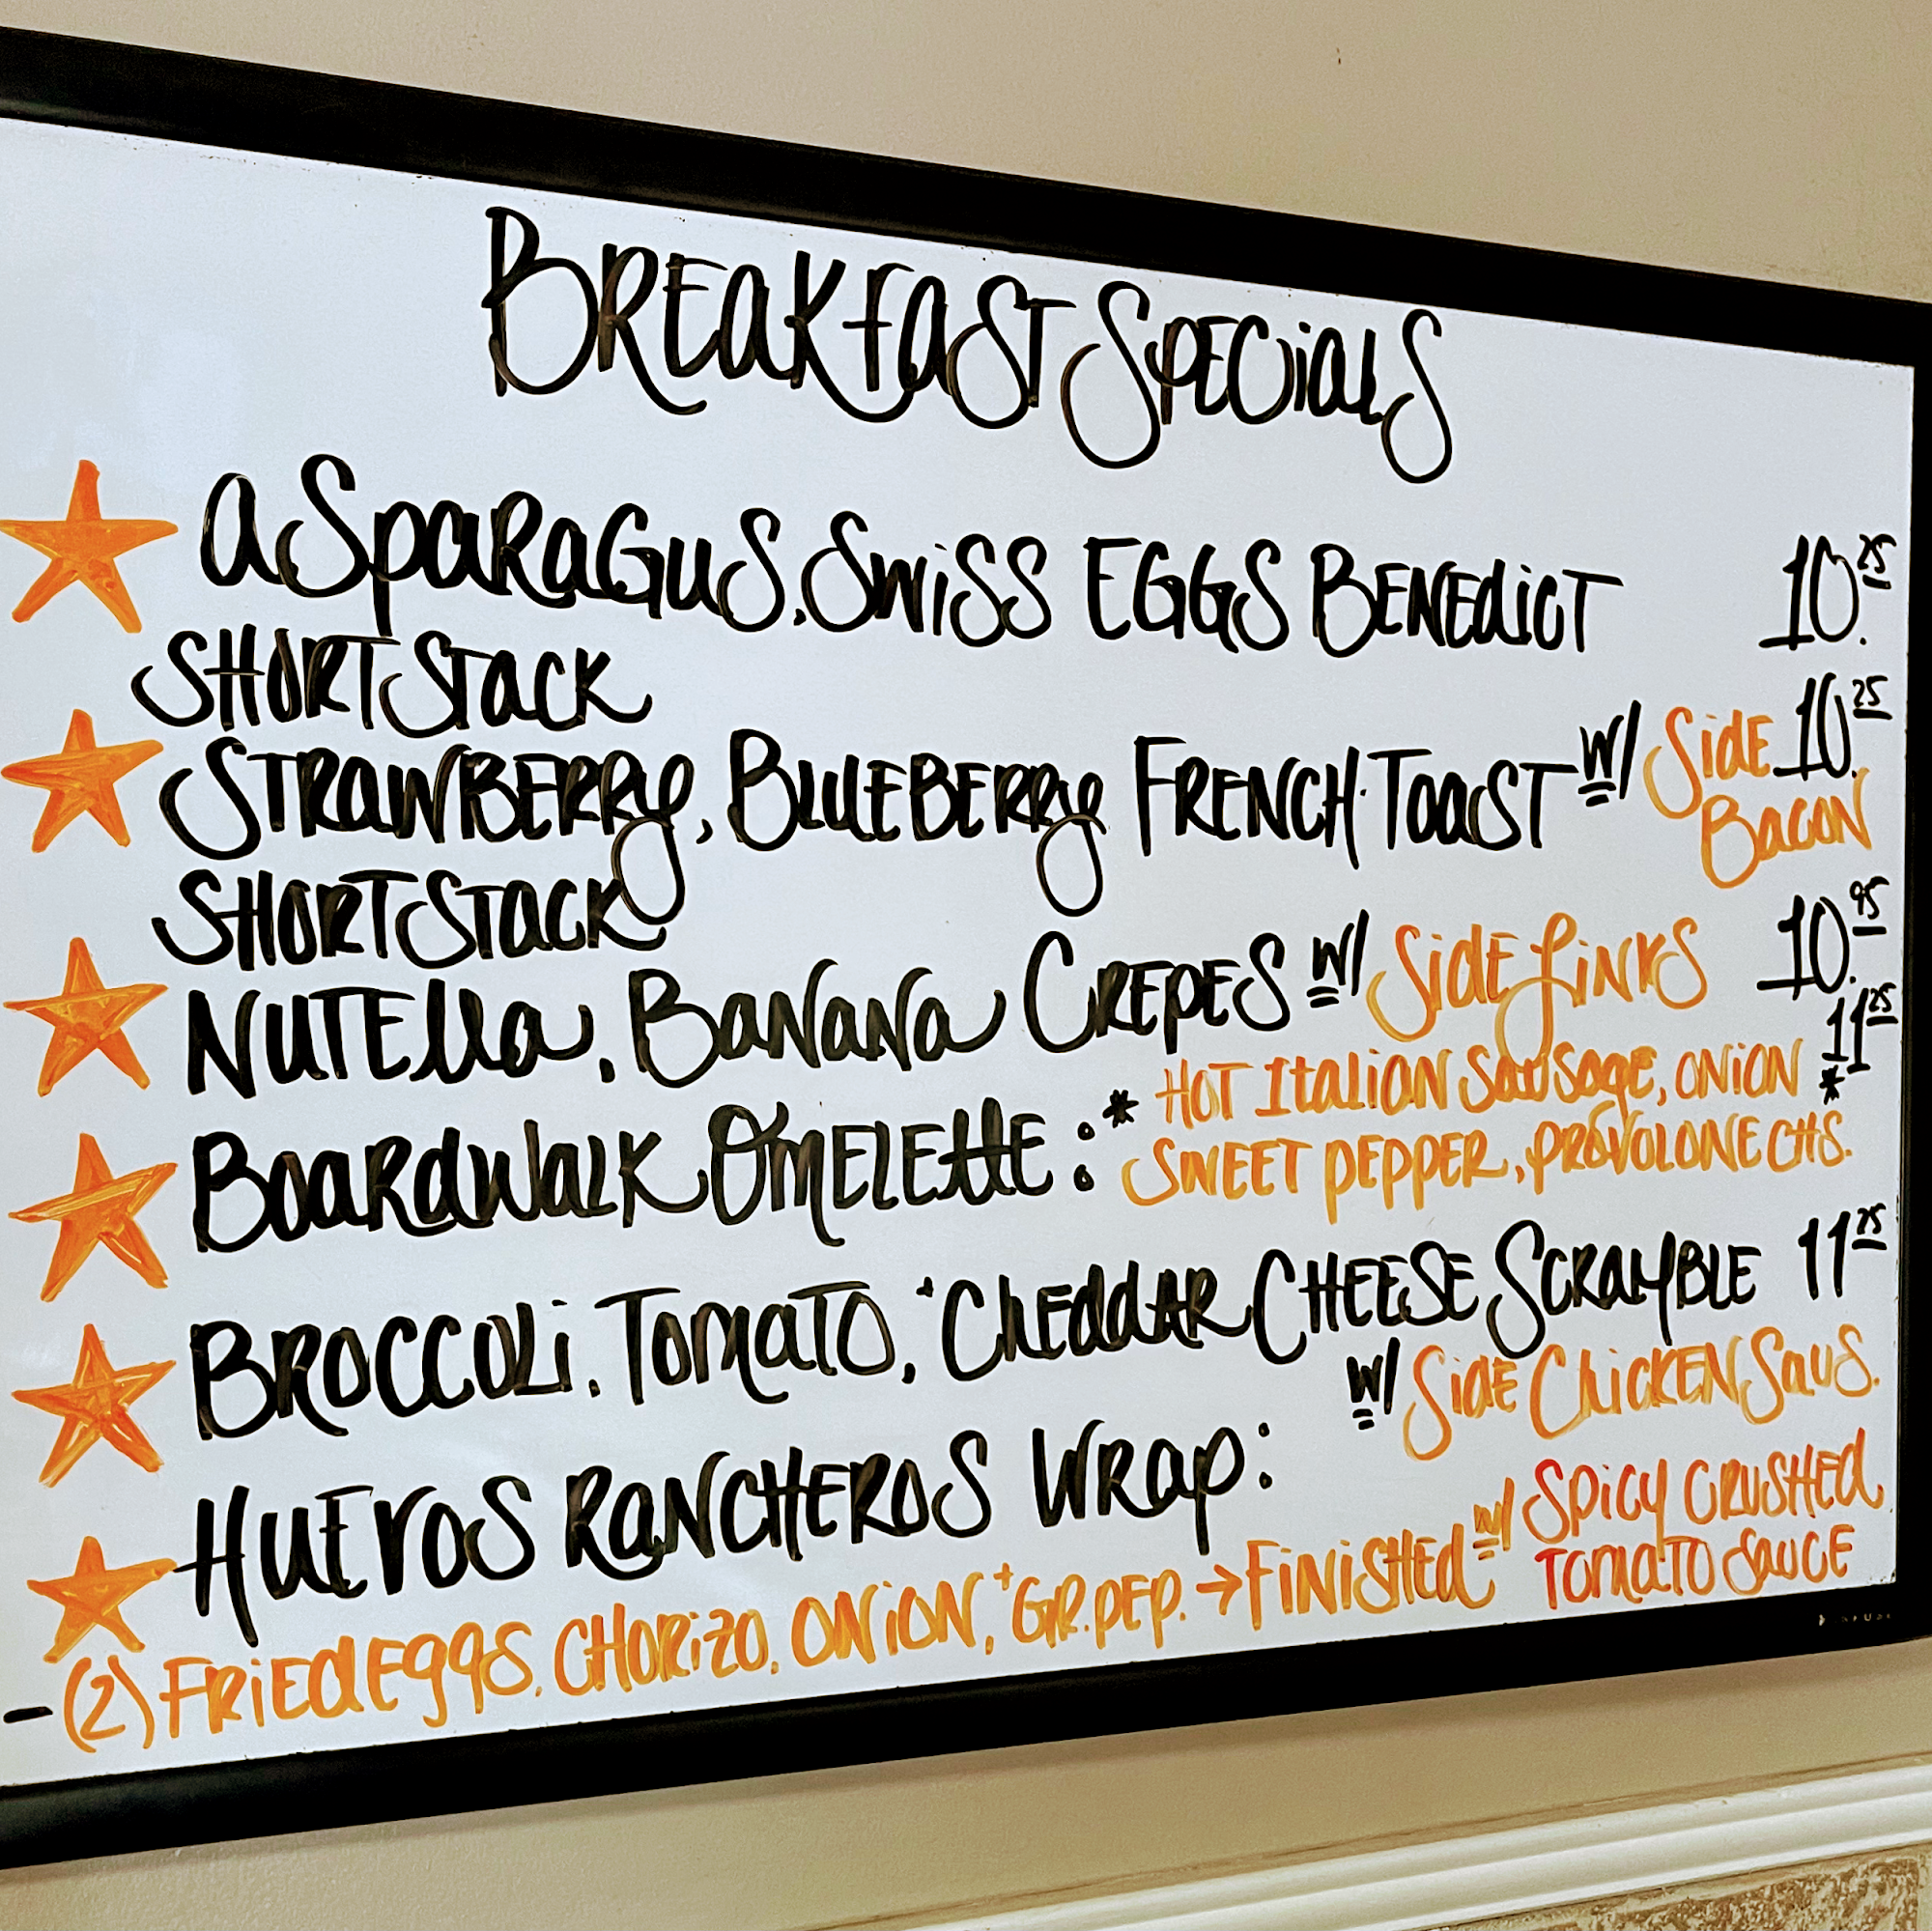 BREAKFAST SPECIALS
ASPARAGUS, SWISS EGGS BENEDICT 10.25
SHORT STACK
STRAWBERRY, BLUEBERRY FRENCH TOAST W/ SIDE BACON 10.25
SHORT STACK
NUTELLA, BANANA CREPES W/ SIDE LINKS 10.95
BOARDWALK OMELETTE: * HOT ITALIAN SAUSAGE, ONION * 11.25
SWEET PEPPER, PROVOLONE CHS.
BROCCOLI, TOMATO, + CHEDDAR CHEESE SCRAMBLE 11.25
W/ SIDE CHICKEN SAUS.
HUEVOS RANCHEROS WRAP:
- (2) FRIED EGGS, CHORIZO, ONION, + GR. PEP. → FINISHED W/ SPICY CRUSHED
TOMATO SAUCE